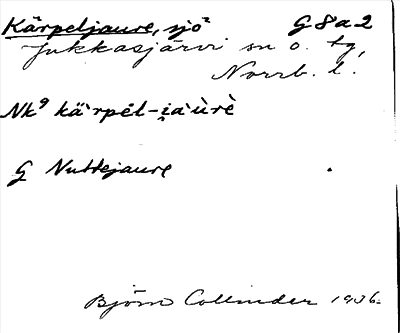 Kärpeljaure, sjö² G 8 a 2
Jukkasjärvi sn o. tg,
Norrb. l.
Nk⁹ kä`rpél-i̯a`ùrè
G Nuttejaure
Björn Collinder 1936.